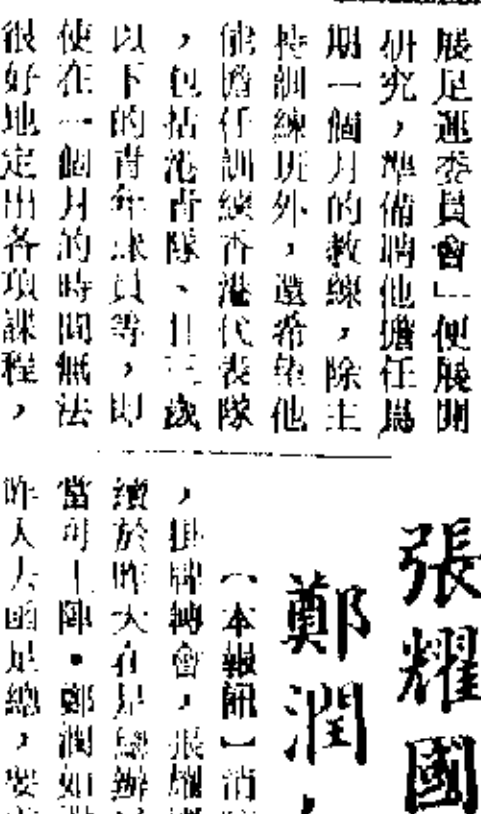 展足運委員會」便展開
研究，準備聘他擔任為
期一個月的教練，除主
持訓練班外，還希望他
能擔任訓練香港代表隊
，包括港青隊、廿三歲
以下的青年球員等，即
使在一個月的時間無法
很好地定出各項課程，
張耀國
鄭潤
（本報訊）消
，掛牌轉會，張耀
續於昨天在足總辦
當可上陣。鄭潤如
昨入去函足總，要